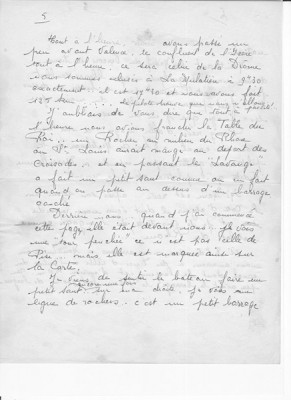 5
Tout à l'heure avons passé un
peu avant Valence, le confluent de l'Isère
tout à l'heure ce sera celui de la Drôme
nous sommes à La Mulatière à 9h30
exactement, il est 17h30 et nous avons fait
125 km
J'oubliais de vous dire que tout à
l'heure nous avions franchi la Table du
Roi, un Rocher au milieu du Rhône
où St Louis aurait mangé au départ des
Croisades, et en passant le
a fait un petit saut comme on en fait
quand on passe au dessus d'un barrage
caché
Derrière nous, quand j'ai commencé
cette page elle était devant nous, je vois
une tour penchée ce n'est pas celle de
Pise, mais elle est marquée ainsi sur
la Carte.
Je viens de sentir le bateau faire un
petit saut, sur ma droite, je vois une
ligne de rochers, c'est un petit barrage